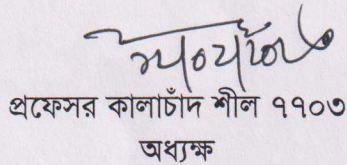 প্রফেসর কালাচাঁদ শীল ৭৭০৩
অধ্যক্ষ